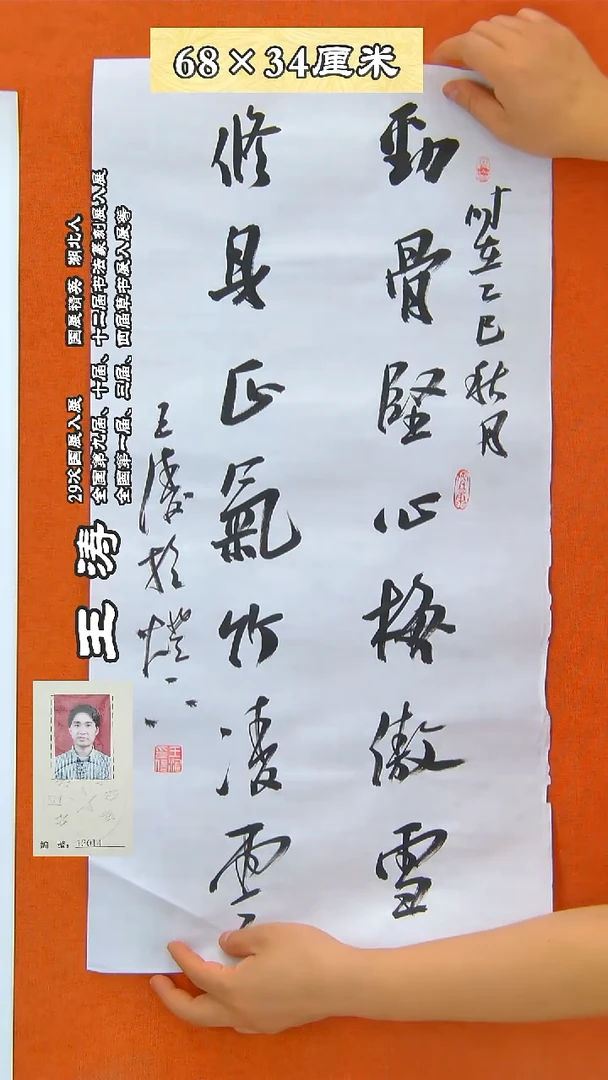 68×34厘米
时在乙巳秋月
勁骨堅心梅傲雪
修身正氣竹凌雲
王涛於
王涛
29次国展入展 国展精英 湖北人
全国第九届、十届、十二届书法篆刻展入展
全国第一届、三届、四届草书展入展等